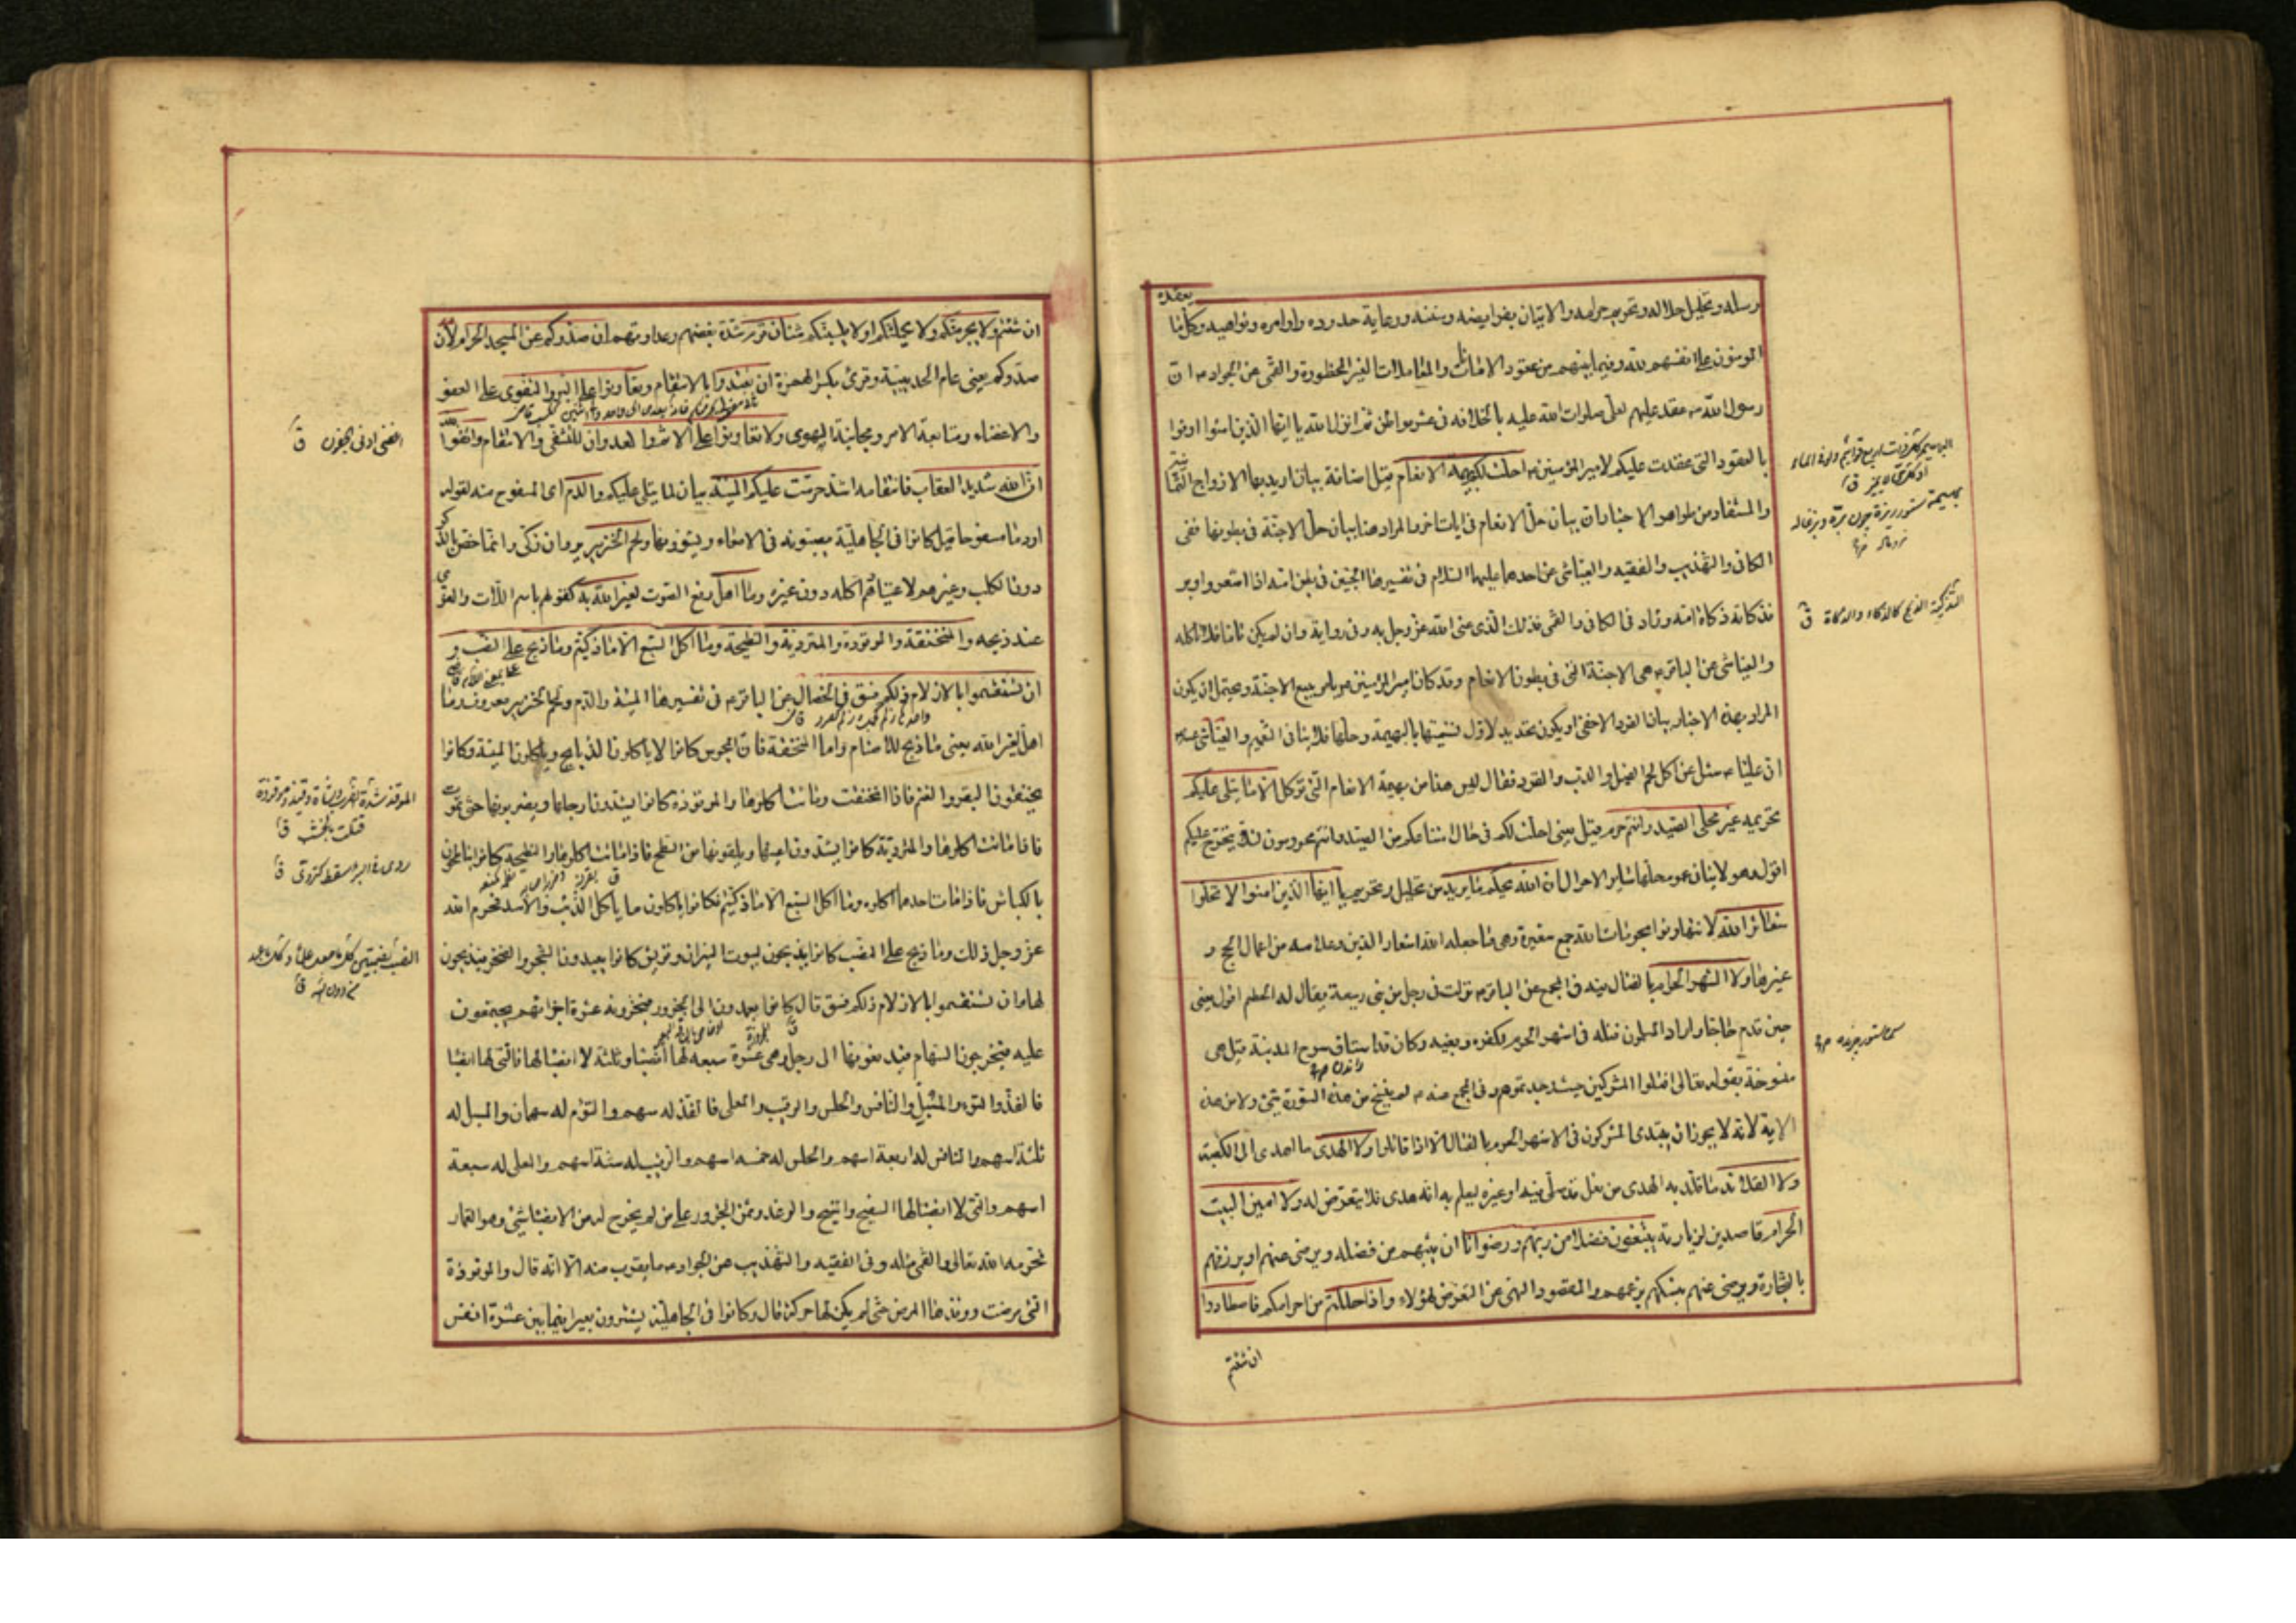 يعقده
رسله وتحليل حلاله وتحريم حرامه والاتيان بفرايضه وسننه ورعاية حدوده واوامره ونواهيه وكلما
المومنون على انفسهم لله وفيما بينهم من عقود الامانات والمعاملات الغير المحظورة والقمى عن الجواد ان
رسول الله عقد عليهم لعلى صلوات الله عليه بالخلافة فى عشر مواطن ثم انزل الله يا ايها الذين امنوا اوفوا
بالعقود التى عقدت عليكم لامير المؤمنين احلت لكم بهيمة الانعام قيل اضافة بيان اريد بها الازواج الثمانية
والمستفاد من ظواهر الاخبار ان بيان حل الانعام فى ايات اخر والمراد هنا بيان حل الاجنة فى بطونها ففى
الكافى والتهذيب والفقيه والعياشى عن احدهما عليهما السلام فى تفسيرها الجنين فى بطن امه اذا اشعر واوبر
فذكاته ذكاة امه وزاد فى الكافى والقمى فذلك الذى عنى الله عز وجل به وفى رواية وان لم يكن تاما فلا تاكله
والعياشى عن الباقر هى الاجنة التى فى بطون الانعام وقد كان امير المؤمنين يامر ببيع الاجنة ويحتمل ان يكون
المراد بهذه الاخبار بيان الفرد الاخفى او يكون تحديد لاول تسميتها بالبهيمة وحلها فلا ينافى التعميم والعياشى عنه
ان عليا سئل عن اكل لحم الفيل والدب والقرد فقال ليس هذا من بهيمة الانعام التى تؤكل الا ما يتلى عليكم
تحريمه غير محلى الصيد وانتم حرم قيل يعنى احلت لكم فى حال امتناعكم من الصيد وانتم محرمون لئلا يتحرج عليكم
اقول وهو لا ينافى عموم حلها ساير الاحوال ان الله يحكم ما يريد من تحليل وتحريم يا ايها الذين امنوا لا تحلوا
شعائر الله لا تتهاونوا بحرمات الله جمع شعيرة وهى ما جعله الله شعار الدين وعلامته من اعمال الحج و
غيرها ولا الشهر الحرام بالقتال فيه فى المجمع عن الباقر نزلت فى رجل من بنى ربيعة يقال له الحطم اقول يعنى
حين قدم حاجا واراد المسلمون قتله فى اشهر الحرم لكفره وبغيه وكان قد استاق سرح المدينة قيل هى
منسوخة بقوله تعالى اقتلوا المشركين حيث وجدتموهم وفى المجمع عنه لم ينسخ من هذه السورة شئ ولا من هذه
الاية لانه لا يجوز ان يبتدى المشركون فى الاشهر الحرم بالقتال الا اذا قاتلوا ولا الهدى ما اهدى الى الكعبة
ولا القلائد ما قلد به الهدى من نعل قد صلى فيه او غيره ليعلم به انه هدى فلا يتعرض له ولا امين البيت
الحرام قاصدين لزيارته يبتغون فضلا من ربهم ورضوانا ان يثيبهم من فضله ويرضى عنهم او يرزقهم
بالتجارة ويرضى عنهم بنسكهم بزعمهم والمقصود النهى عن التعرض لهؤلاء واذا حللتم من احرامكم فاصطادوا
ان شئتم
التذكية الذبح كالذكاء والذكاة ق
ان شئتم ولا يجرمنكم ولا يحملنكم او لا يكسبنكم شنان قوم شدة بغضهم وعداوتهم ان صدوكم عن المسجد الحرام لان
صدوكم يعنى عام الحديبية وقرئ بكسر الهمزة ان تعتدوا بالانتقام وتعاونوا على البر والتقوى على العفو
والاغضاء ومتابعة الامر ومجانبة الهوى ولا تعاونوا على الاثم والعدوان للتشفى والانتقام واتقوا الله
ان الله شديد العقاب فانتقامه اشد حرمت عليكم الميتة بيان لما يتلى عليكم والدم اى المسفوح منه لقوله
او دما مسفوحا قيل كانوا فى الجاهلية يصبونه فى الامعاء ويشوونها ولحم الخنزير وان ذكى وانما خص بالذكر
دون الكلب وغيره لاعتيادهم اكله دون غيره وما اهل رفع الصوت لغير الله به كقولهم باسم اللات والعزى
عند ذبحه والمنخنقة والموقوذة والمتردية والنطيحة وما اكل السبع الا ما ذكيتم وما ذبح على النصب و
ان تستقسموا بالازلام ذلكم فسق فى الخصال عن الباقر فى تفسيرها الميتة والدم ولحم الخنزير معروف وما
اهل لغير الله يعنى ما ذبح للاصنام واما المنخنقة فان المجوس كانوا لا ياكلون الذبايح وياكلون الميتة وكانوا
يخنقون البقر والغنم فاذا انخنقت وماتت اكلوها والموقوذة كانوا يشدون ارجلها ويضربونها حتى تموت
فاذا ماتت اكلوها والمتردية كانوا يشدون اعينها ويلقونها من السطح فاذا ماتت اكلوها والنطيحة كانوا يناطحون
بالكباش فاذا مات احدهما اكلوه وما اكل السبع الا ما ذكيتم فكانوا ياكلون ما ياكل الذئب والاسد فحرم الله
عز وجل ذلك وما ذبح على النصب كانوا يذبحون لبيوت النيران وقريش كانوا يعبدون الشجر والصخر فيذبحون
لها وان تستقسموا بالازلام ذلكم فسق قال كانوا يعمدون الى الجزور فيجزونه عشرة اجزاء ثم يجتمعون
عليه فيخرجون السهام فيدفعونها الى رجل وهى عشرة سبعة لها انصباء وثلثة لا انصباء لها فالتى لها انصباء
فالفذ والتوم والمسبل والنافس والحلس والرقيب والمعلى فالفذ له سهم والتوم له سهمان والمسبل له
ثلثة اسهم والنافس له اربعة اسهم والحلس له خمسة اسهم والرقيب له ستة اسهم والمعلى له سبعة
اسهم والتى لا انصباء لها السفيح والمنيح والوغد وثمن الجزور على من لم يخرج له من الانصباء شئ وهو القمار
فحرمه الله تعالى والقمى مثله وفى الفقيه والتهذيب عن الجواد ما يقرب منه الا انه قال والموقوذة
التى مرضت ووقذها المرض حتى لم يكن لها حركة قال وكانوا فى الجاهلية يشترون بعيرا فيما بين عشرة انفس